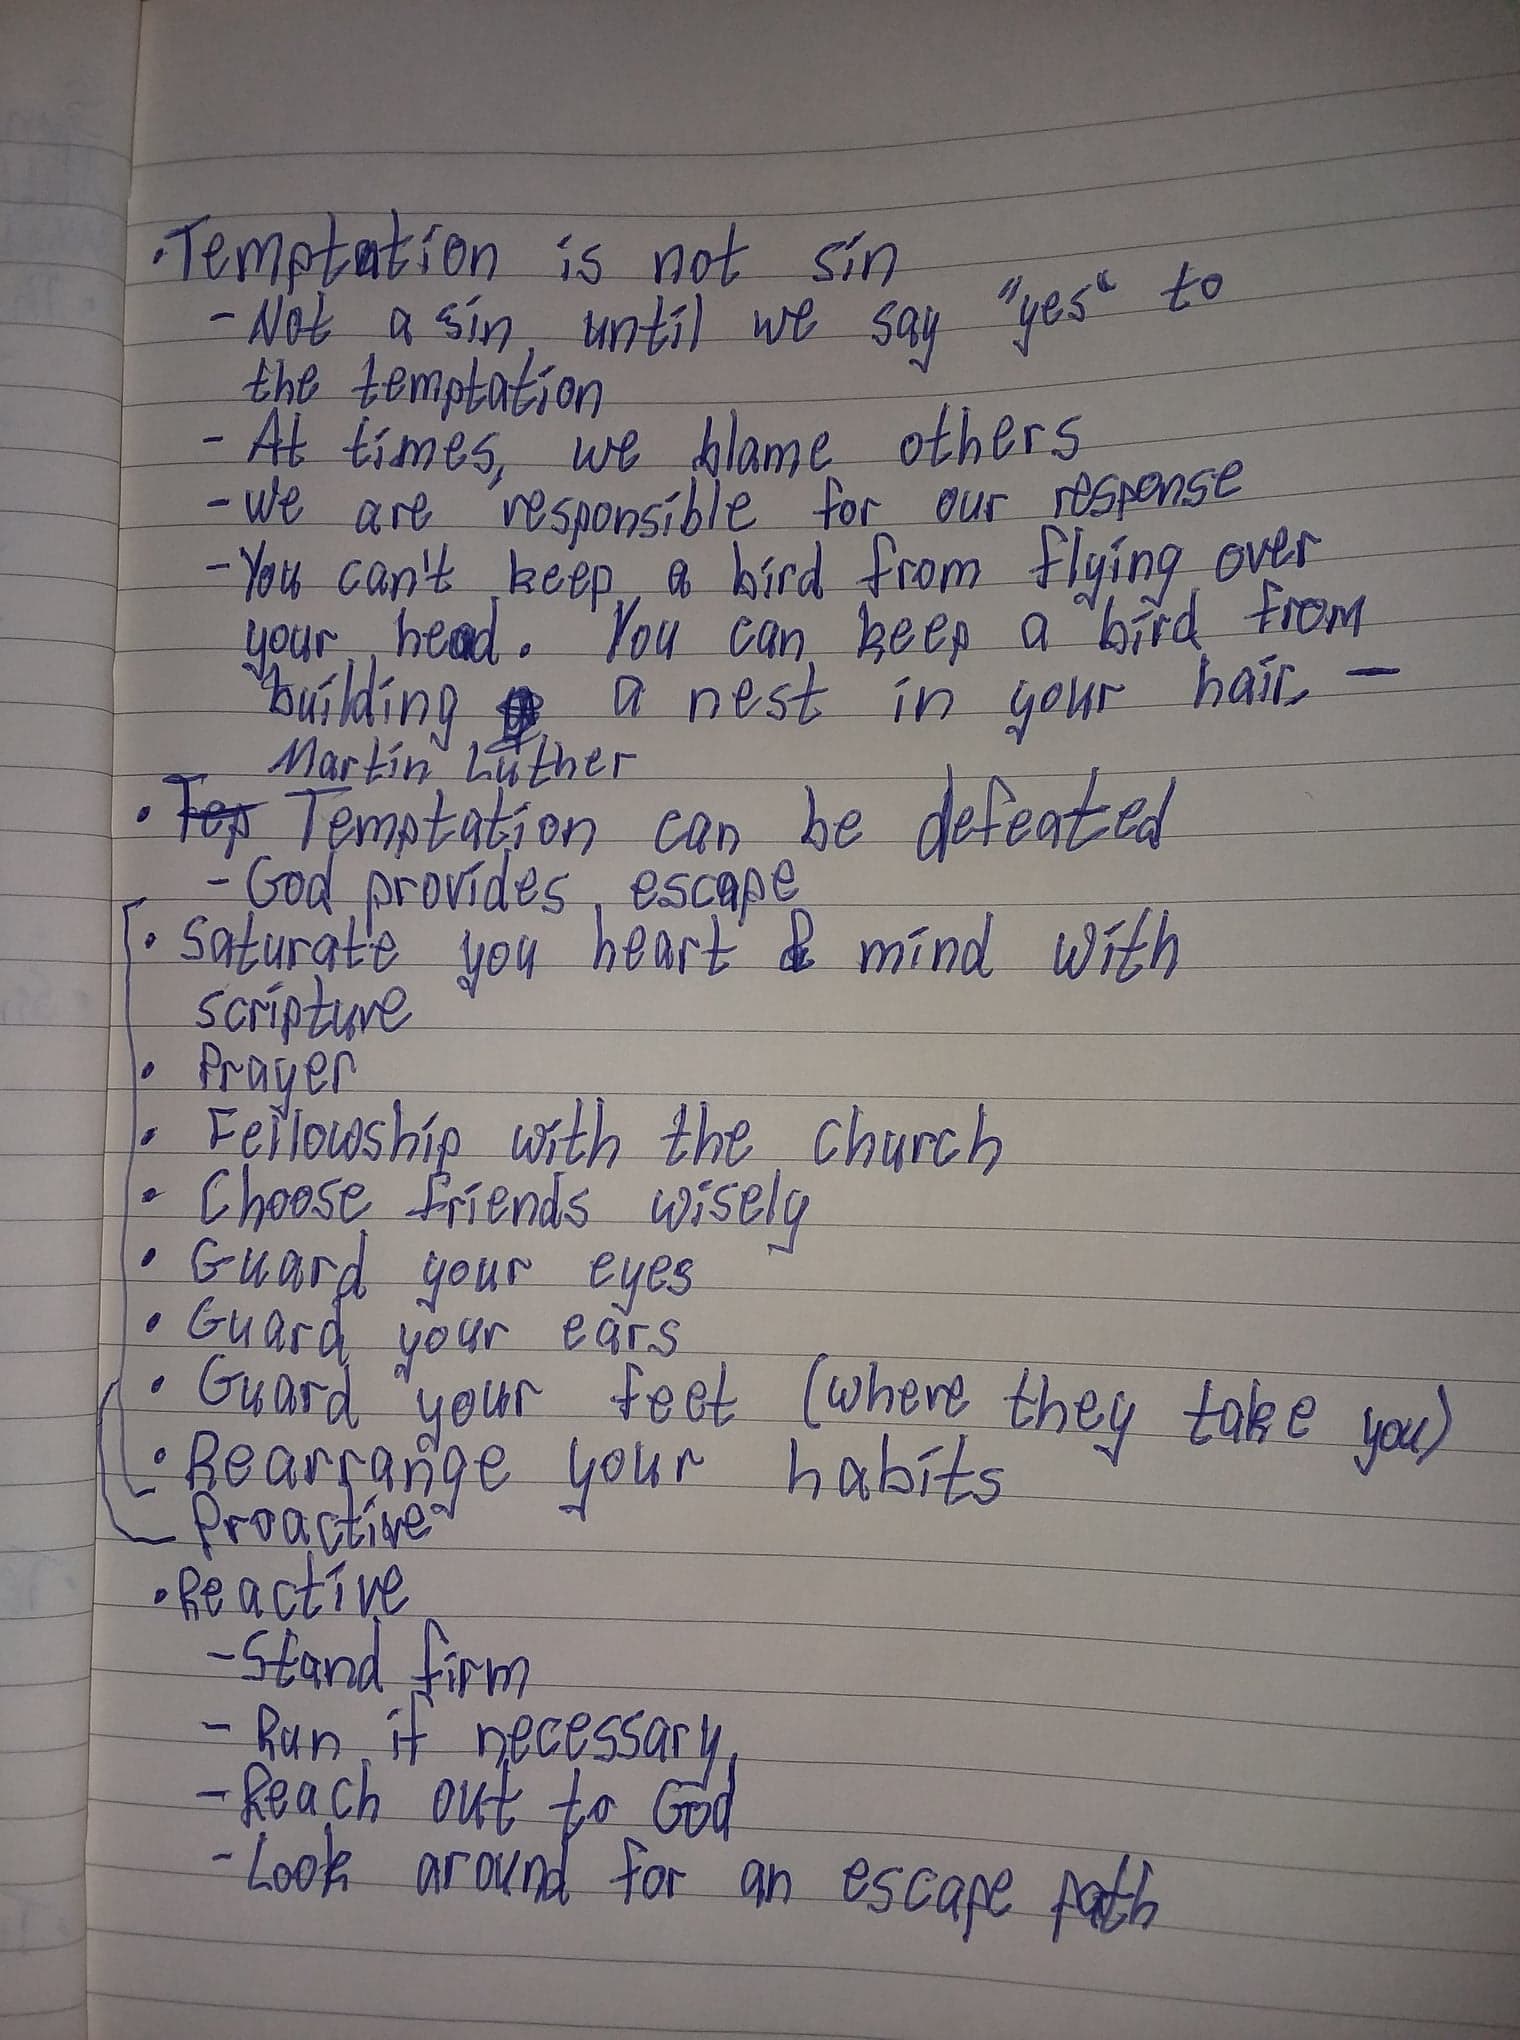 • Temptation is not sin
- Not a sin until we say "yes" to
the temptation
- At times, we blame others
- We are responsible for our response
- You can't keep a bird from flying over
your head. You can keep a bird from
building a nest in your hair. -
Martin Luther
• Tep Temptation can be defeated
- God provides escape
• Saturate you heart & mind with
scripture
• Prayer
• Fellowship with the church
• Choose friends wisely
• Guard your eyes
• Guard your ears
• Guard your feet (where they take you)
• Rearrange your habits
Proactive
• Reactive
- Stand firm
- Run if necessary
- Reach out to God
- Look around for an escape path